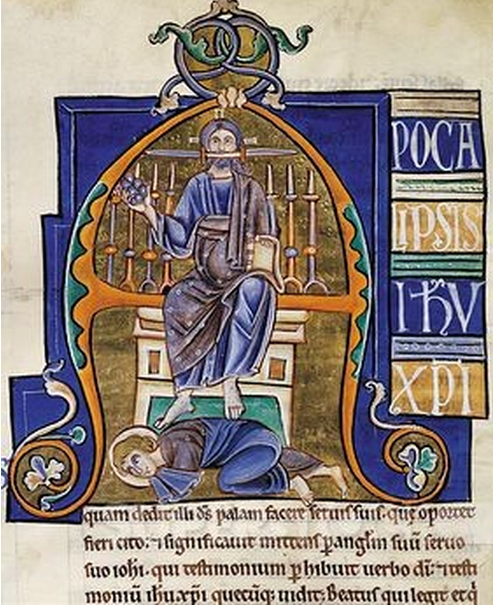 APOCA
IPSIS
IħV
XP̄I
quam dedit illi ds̄ palam facere seruis suis. que oportet
fieri cito: ⁊ significauit mittens ꝑ angl̄m suū seruo
suo iohi. qui testimonium ꝑhibuit uerbo dī: ⁊ testi
moniū ihu xp̄i quecūq; uidit; Beatus qui legit et q̄